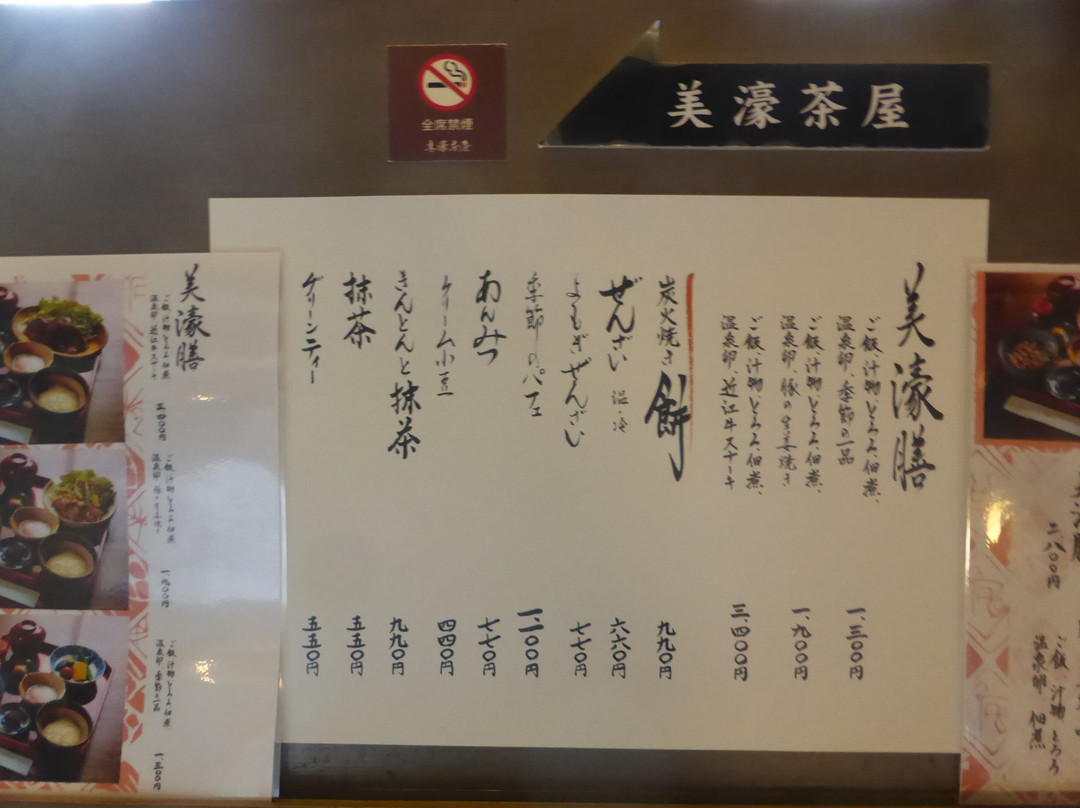 全席禁煙
美濠茶屋
美濠茶屋
美濠膳
ご飯、汁物、とろろ、佃煮、
温泉卵、季節の一品
一、三〇〇円
ご飯、汁物、とろろ、佃煮、
温泉卵、豚の生姜焼き
一、九〇〇円
ご飯、汁物、とろろ、佃煮、
温泉卵、近江牛ステーキ
三、四〇〇円
炭火焼き餅
九九〇円
ぜんざい 温・冷
六六〇円
よもぎぜんざい
七七〇円
季節のパフェ
一、二〇〇円
あんみつ
七七〇円
クリーム小豆
四四〇円
きんとんと抹茶
九九〇円
抹茶
五五〇円
グリーンティー
五五〇円
美濠膳
ご飯、汁物、とろろ、佃煮、
温泉卵、近江牛ステーキ
三、四〇〇円
ご飯、汁物、とろろ、佃煮、
温泉卵、豚の生姜焼き
一、九〇〇円
ご飯、汁物、とろろ、佃煮、
温泉卵、季節の一品
一、三〇〇円
二、八〇〇円
ご飯、汁物、とろろ
温泉卵、佃煮